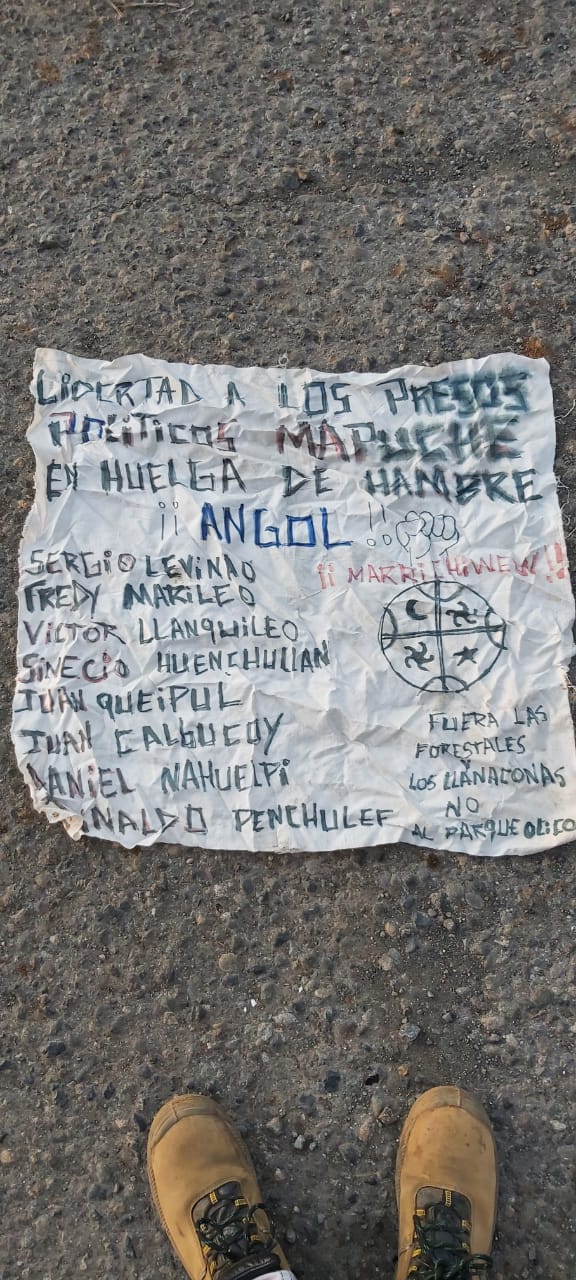 LIBERTAD A LOS PRESOS
POLITICOS MAPUCHE
EN HUELGA DE HAMBRE
¡¡ ANGOL !!
SERGIO LEVINAO
FREDY MARILEO
VICTOR LLANQUILEO
SINECIO HUENCHULLAN
JUAN QUEIPUL
JUAN CALBUCOY
DANIEL NAHUELPI
PENCHULEF
¡¡ MARRICHIWEW!!
FUERA LAS
FORESTALES
Y
LOS LLANACONAS
NO
AL PARQUE